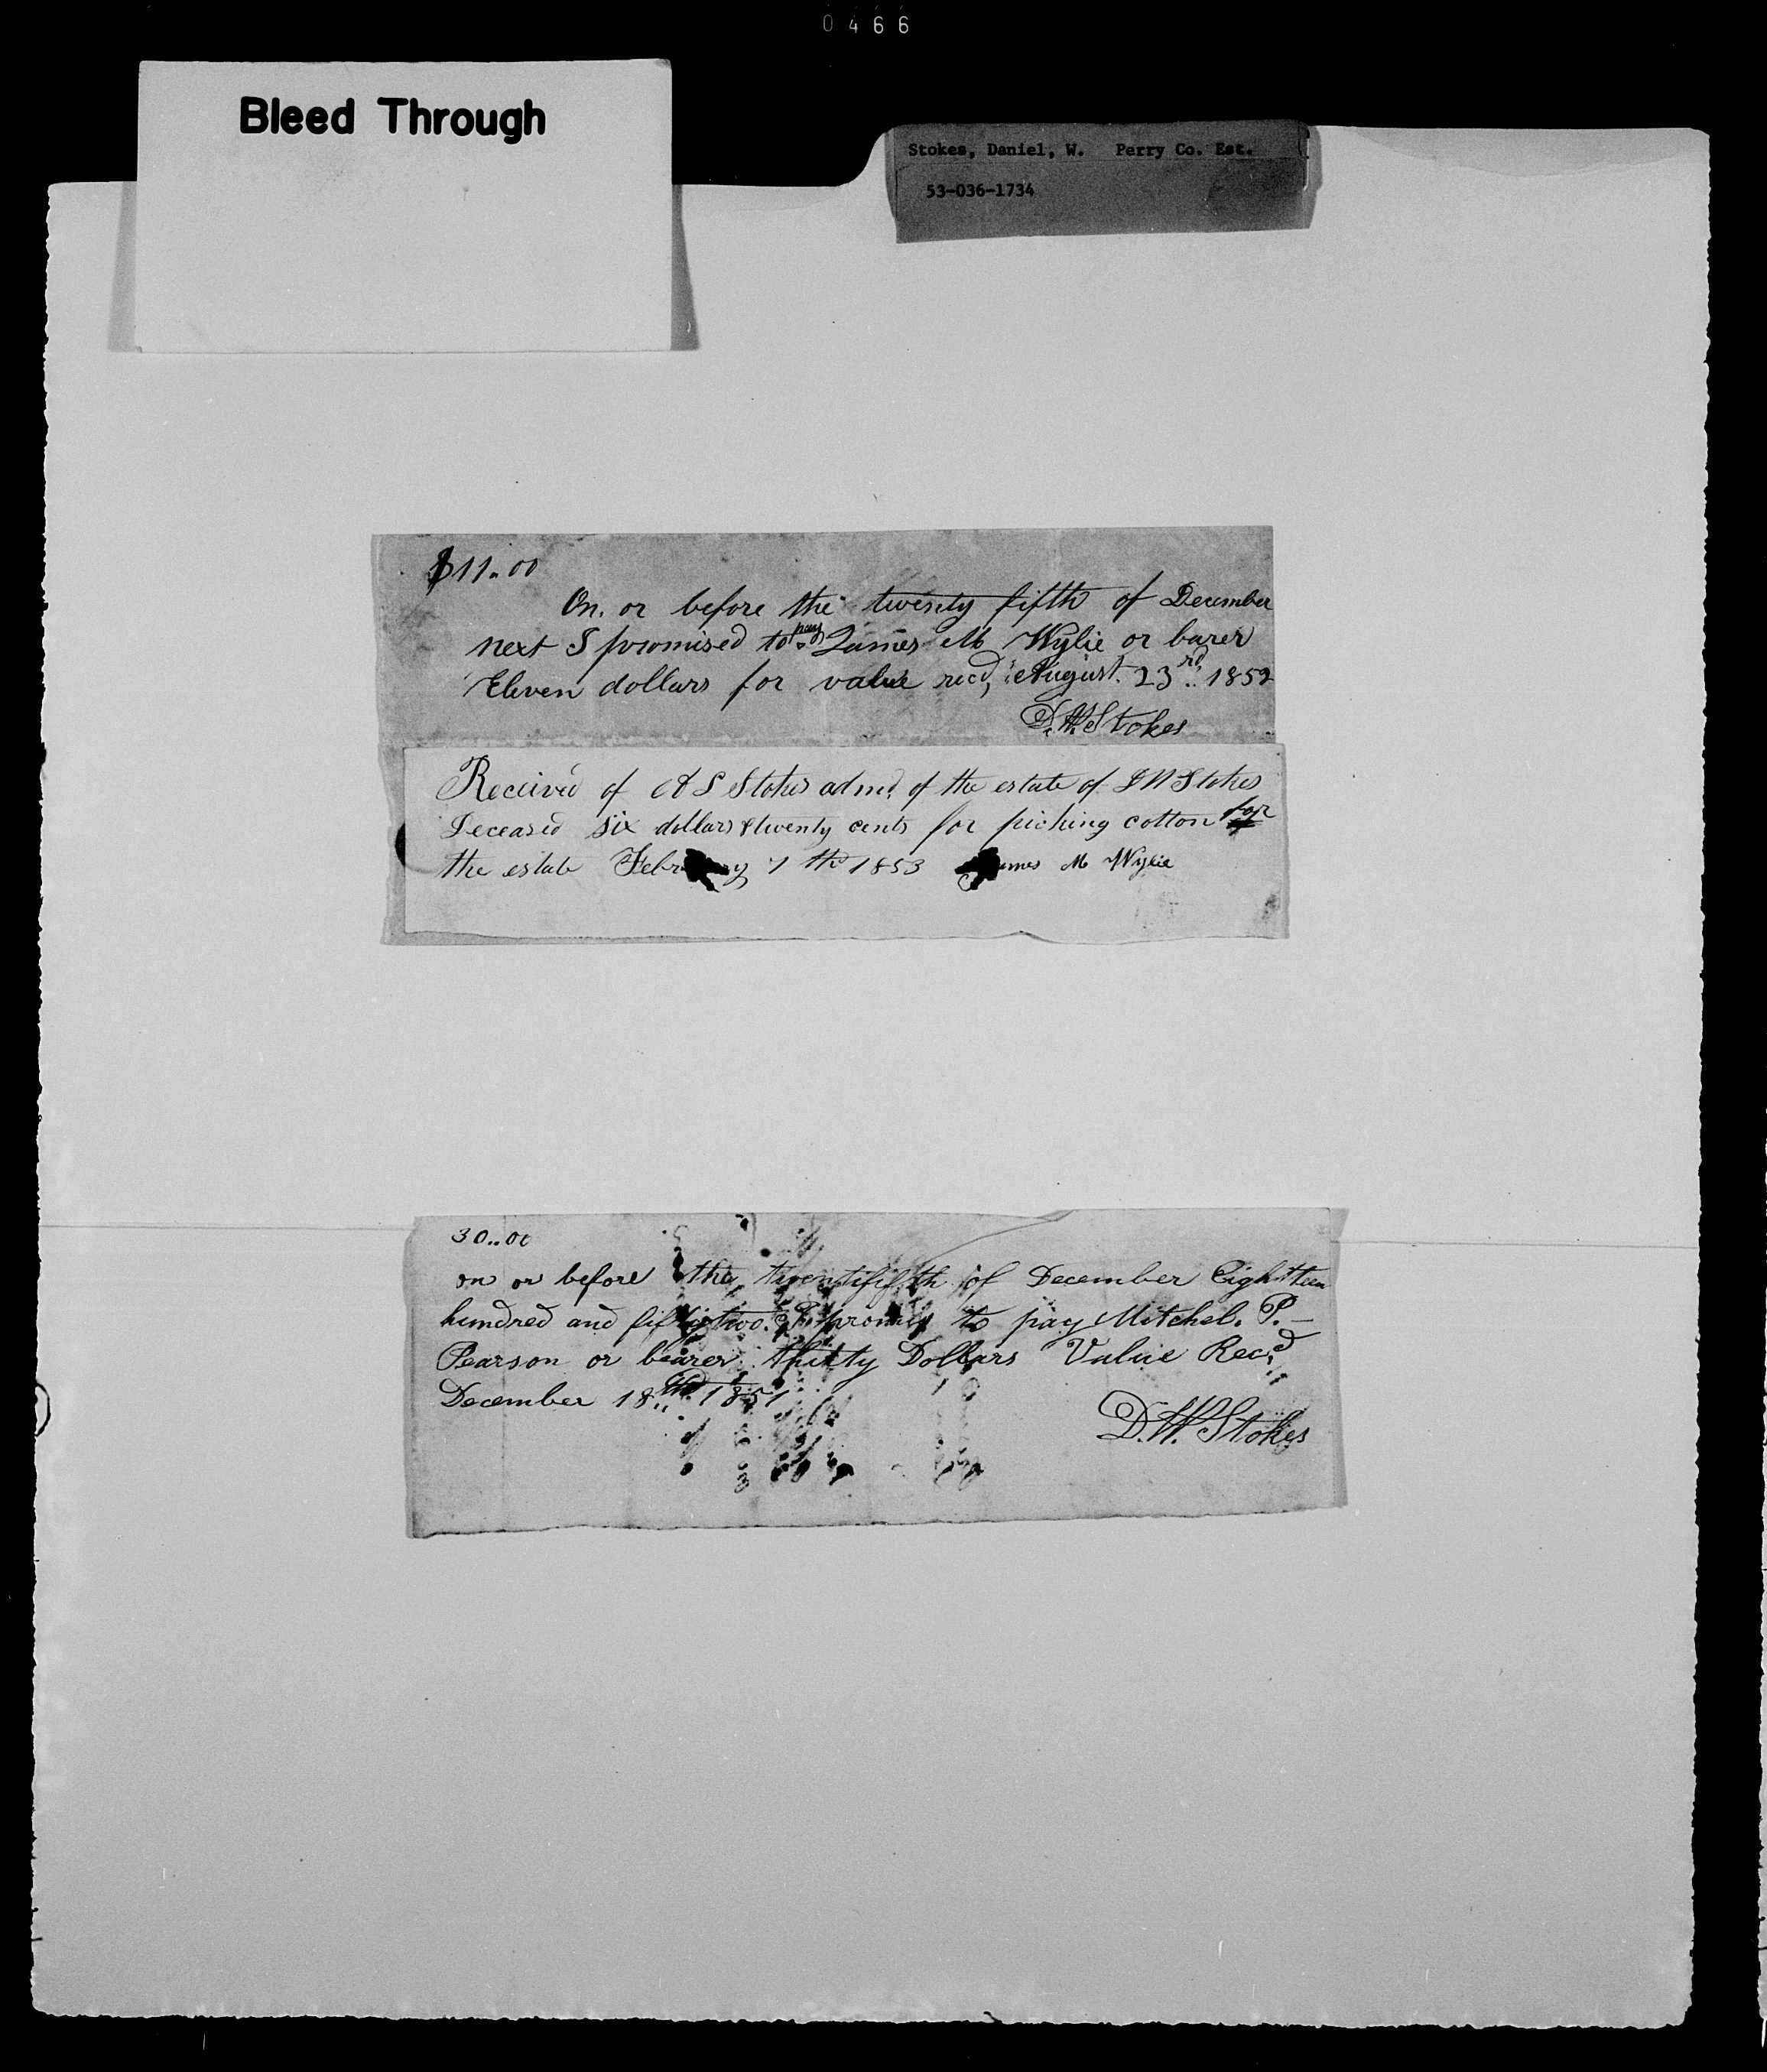 0466
Bleed Through
Stokes, Daniel, W. Perry Co. Est.
53-036-1734
$11.00
On. or before the twenty fifth of December
next I promised to pay James M Wylie or barer
Eleven dollars for value recd, August. 23rd 1852
D. W. Stokes
Received of A S Stokes admr. of the estate of D W Stokes
Deceased six dollars & twenty cents for picking cotton for
the estate February 7th 1853 James M Wylie
30..00
on or before the twentififth of December Eightteen
hundred and fifty two. I promis to pay Mitchel. P. -
Pearson or bearer thirty Dollars Value Recd
December 18th 1851
D. W. Stokes